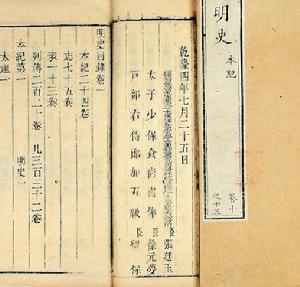 明史
本紀
卷十
之十三
乾隆四年七月二十五日
張廷玉
太子少保食尚書俸臣徐元夢
戶部右侍郎加五級臣留保
明史目錄卷一
本紀二十四卷
志七十五卷
表一十三卷
列傳二百二十卷 凡三百三十二卷
本紀第一 明史一
太祖一